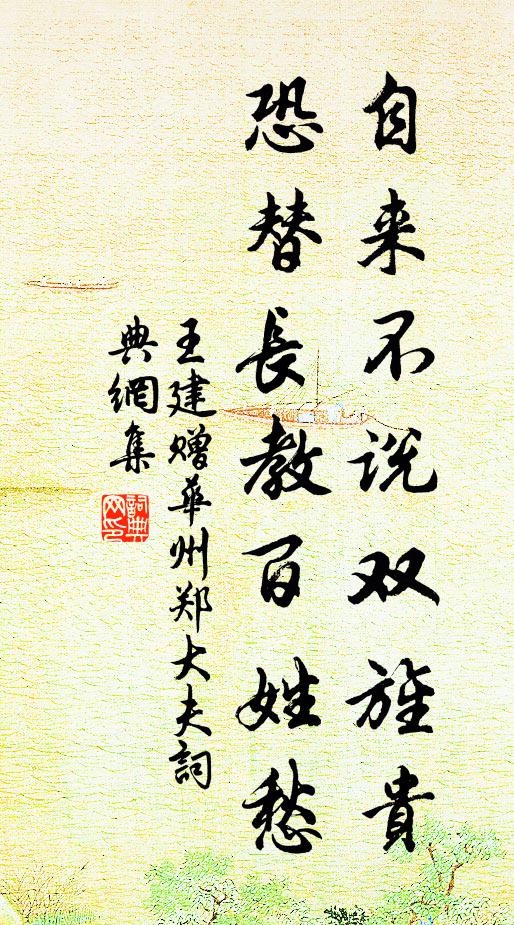 自来不说双旌貴
恐替長教百姓愁
王建赠華州郑大夫詞
典網集
詞典
网印